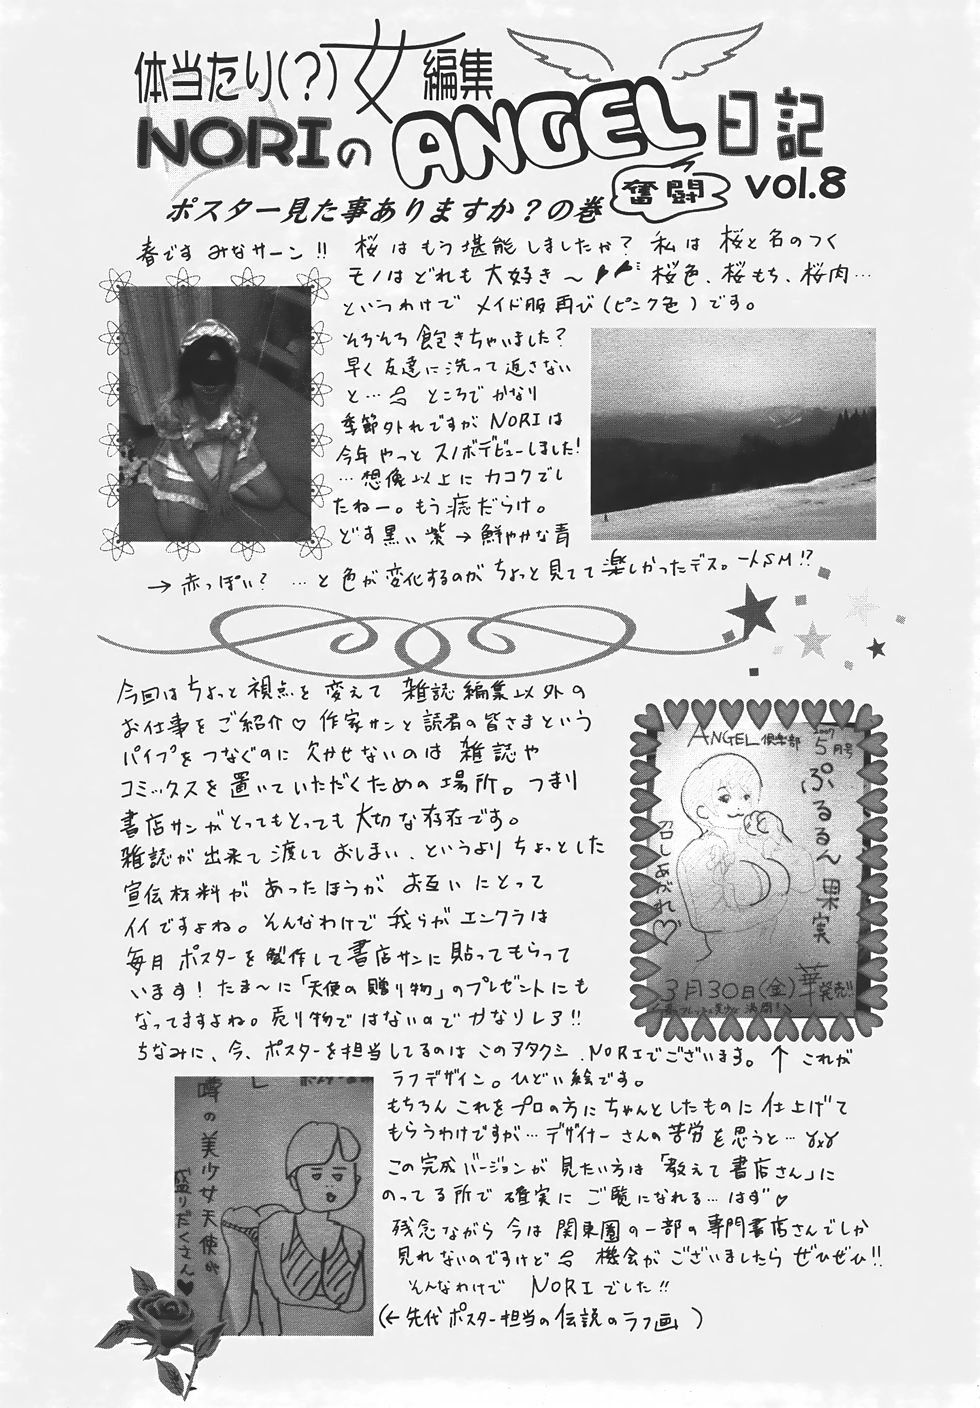 体当たり(?)女編集
NORIのANGEL日記
奮闘
vol.8
ポスター見た事ありますか?の巻
春です みなサーン!! 桜はもう堪能しましたか? 私は 桜と名のつく
モノはどれも大好き〜 桜色、桜もち、桜肉…
というわけで メイド服再び(ピンク色)です。
そろそろ飽きちゃいました?
早く友達に洗って返さない
と… ところでかなり
季節外れですが NORIは
今年やっとスノボデビューしました!
…想像以上にカコクでし
たねー。もう痣だらけ。
どす黒い紫→鮮やかな青
→赤っぽい? …と色が変化するのがちょっと見てて楽しかったデス。一人SM!?
今回はちょっと視点を変えて 雑誌編集以外の
お仕事をご紹介♡ 作家サンと読者の皆さまという
パイプをつなぐのに欠かせないのは 雑誌や
コミックスを置いていただくための場所。つまり
書店サンがとってもとっても大切な存在です。
雑誌が出来て渡しておしまい、というよりちょっとした
宣伝材料があったほうがお互いにとって
イイですよね。そんなわけで我らがエンクラは
毎月ポスターを製作して書店サンに貼ってもらって
います! たま〜に「天使の贈り物」のプレゼントにも
なってますよね。売り物ではないのでかなりレア!!
ちなみに、今、ポスターを担当してるのはこのアタクシ、NORIでございます。↑これが
ラフデザイン。ひどい絵です。
もちろんこれをプロの方にちゃんとしたものに仕上げて
もらうわけですが…デザイナーさんの苦労を思うと…
この完成バージョンが見たい方は「教えて書店さん」に
のってる所で確実にご覧になれる…はず♡
残念ながら今は関東圏の一部の専門書店さんでしか
見れないのですけど 機会がございましたらぜひぜひ!!
そんなわけで NORIでした!!
(←先代ポスター担当の伝説のラフ画)
ANGEL倶楽部
5月号
ぷるるん果実
召しあがれ♡
3月30日(金)発売!!
噂の美少女天使が
盛りだくさん♥